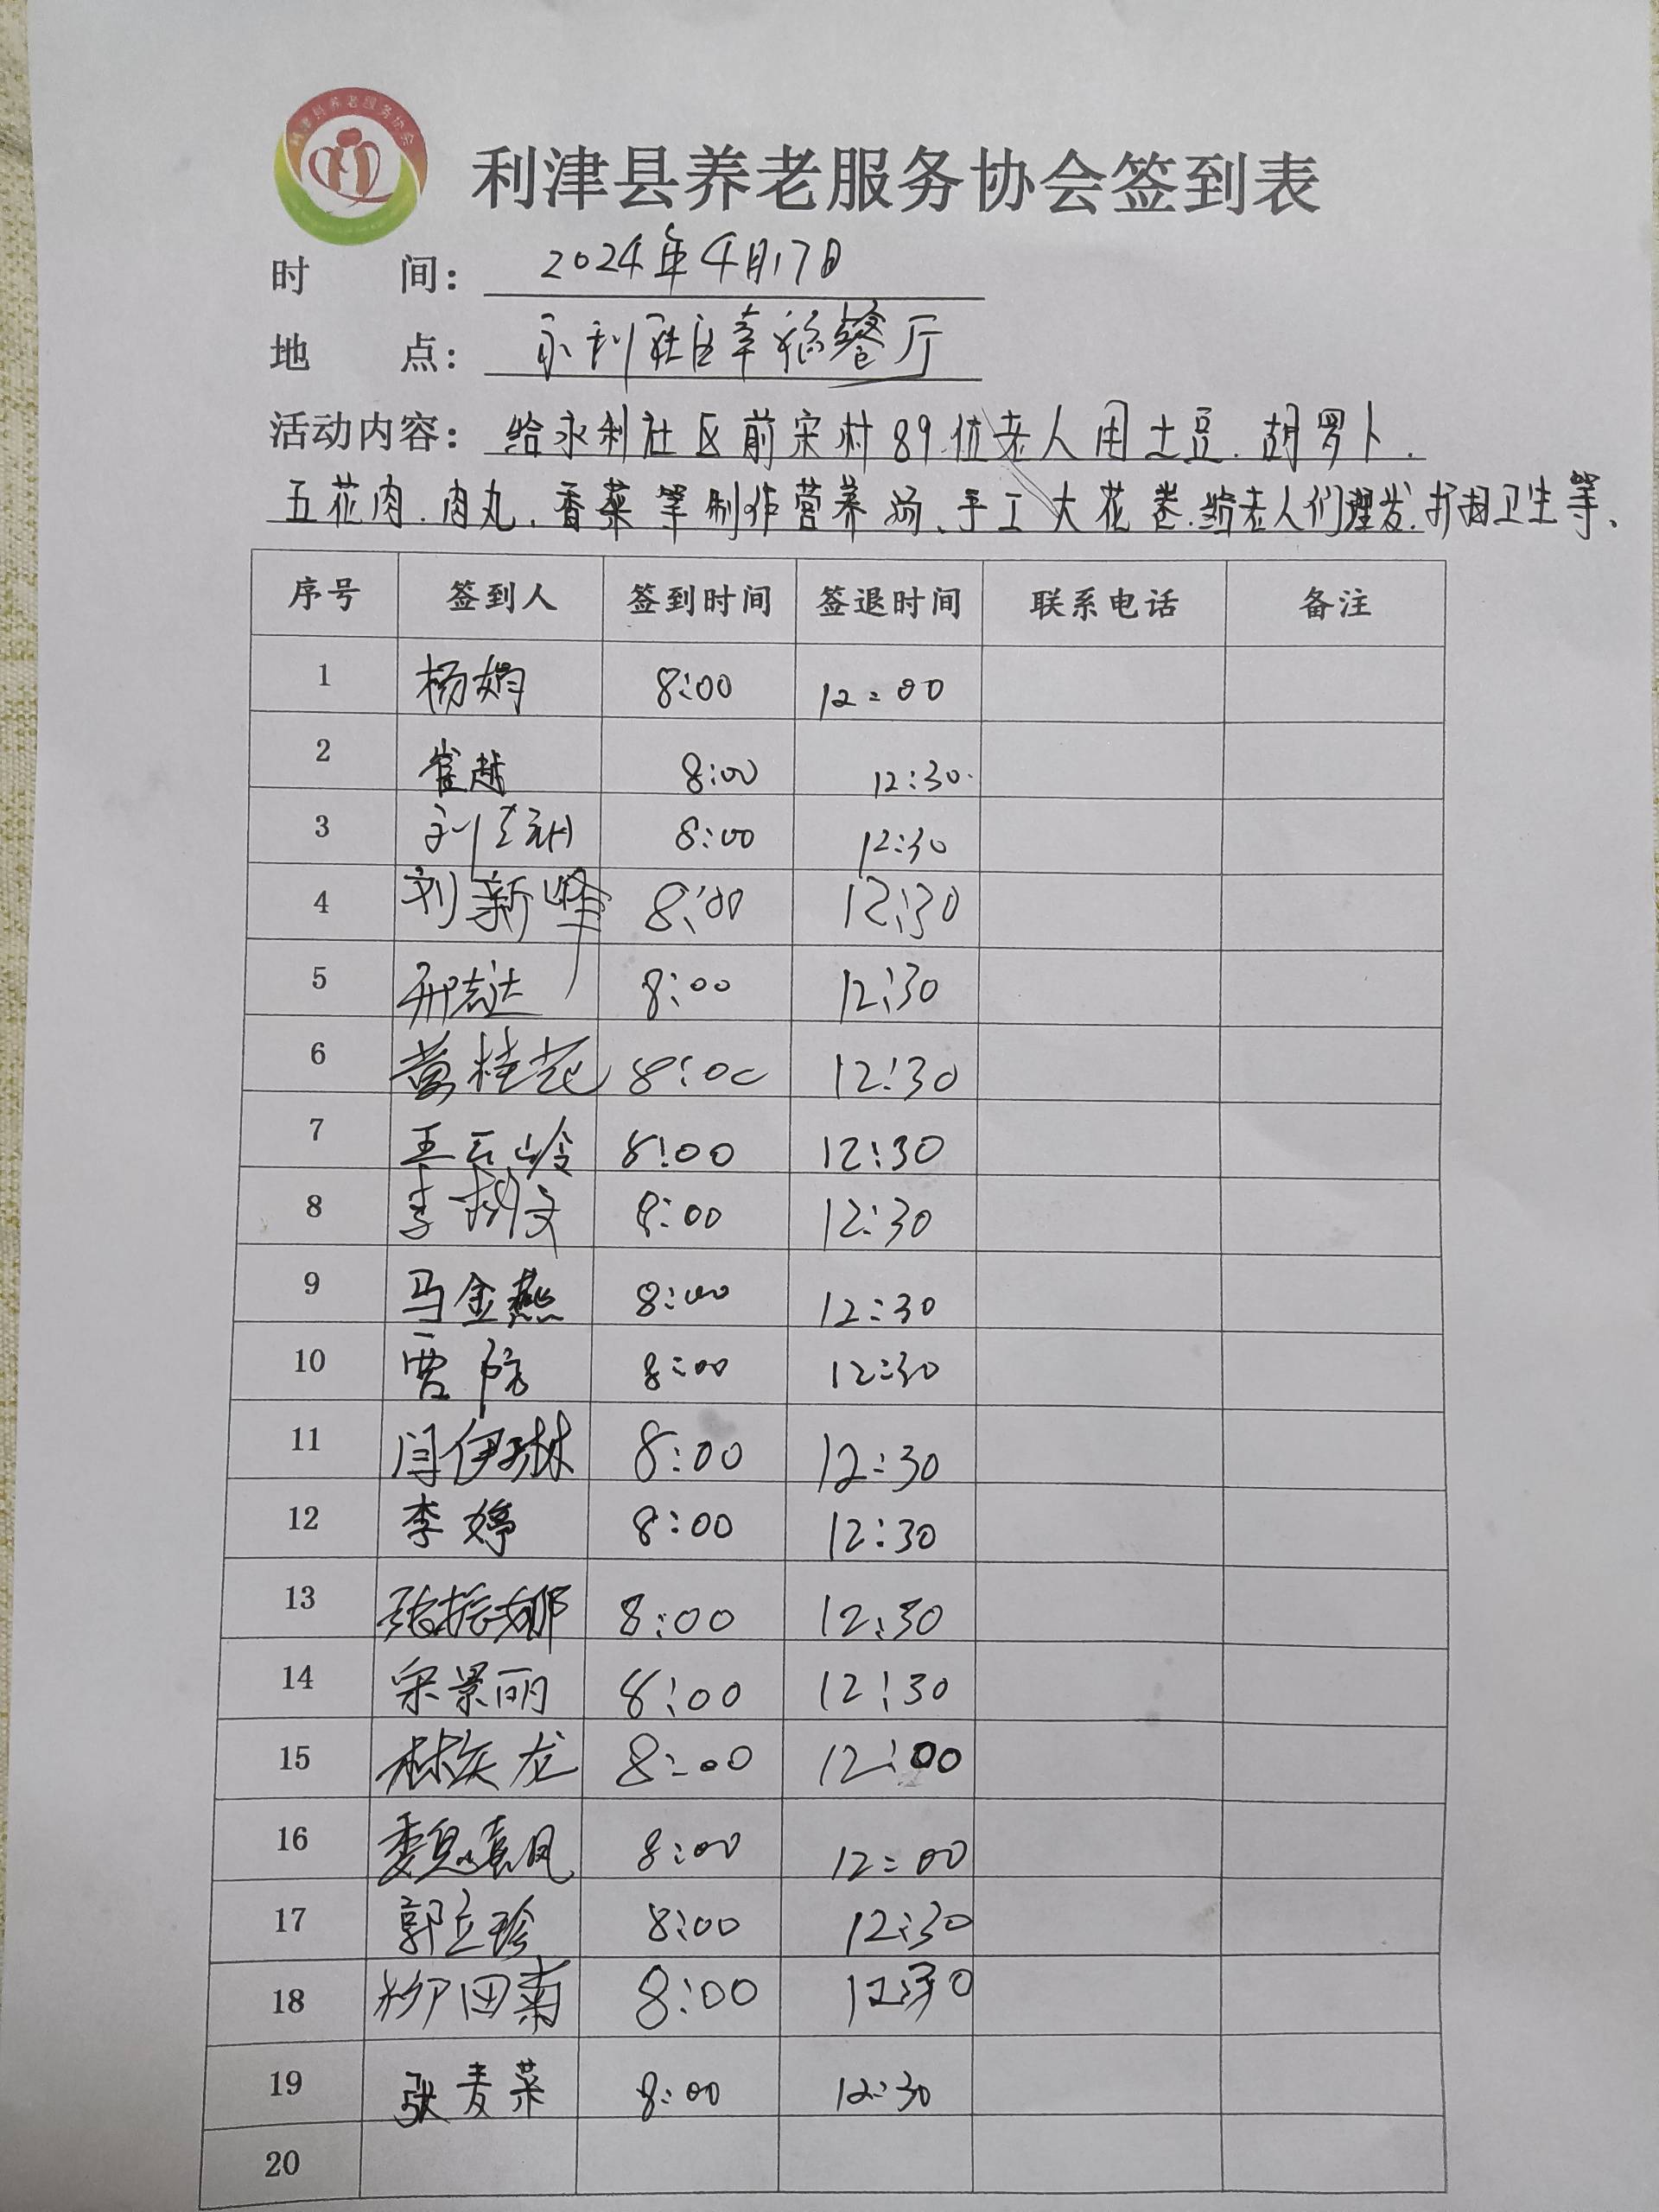 利津县养老服务协会
利津县养老服务协会签到表
时 间： 2024年4月17日
地 点： 永利社区幸福餐厅
活动内容： 给永利社区前宋村89位老人用土豆.胡罗卜.
五花肉.肉丸.香菜等制作营养汤、手工大花卷.给老人们理发.打扫卫生等、
序号 签到人 签到时间 签退时间 联系电话 备注
1 杨娟 8:00 12:00
2 崔越 8:00 12:30
3 刘 8:00 12:30
4 刘新峰 8:00 12:30
5 邢志达 8:00 12:30
6 黄桂花 8:00 12:30
7 王云岭 8:00 12:30
8 李树文 8:00 12:30
9 马金燕 8:00 12:30
10 贾 8:00 12:30
11 闫伊琳 8:00 12:30
12 李婷 8:00 12:30
13 张振娜 8:00 12:30
14 宋景丽 8:00 12:30
15 林庆龙 8:00 12:00
16 魏嘉凤 8:00 12:00
17 郭立珍 8:00 12:30
18 柳田菊 8:00 12:30
19 张麦菜 8:00 12:30
20